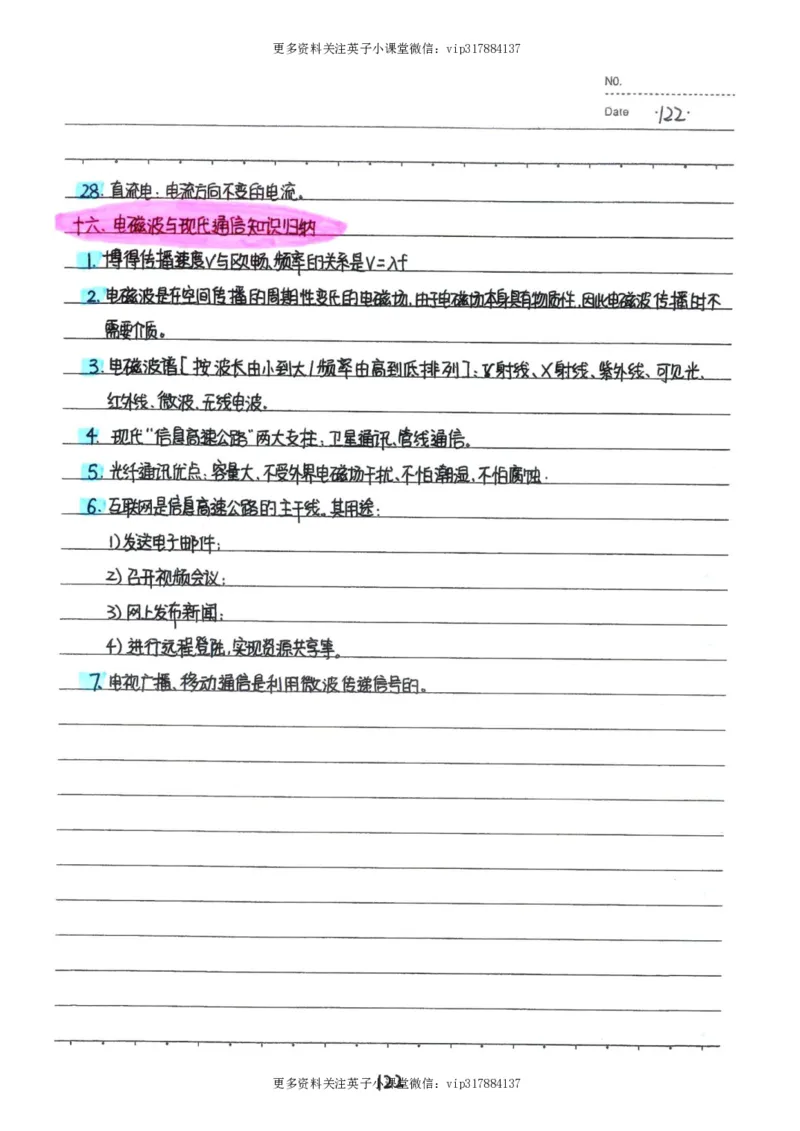 更多资料关注英子小课堂微信：vip317884137
NO.
Date ·122·
28. 直流电：电流方向不变的电流。
十六、电磁波与现代通信知识归纳
1. 博得传播速度V与欧畅、频率的关系是V=λf
2. 电磁波是在空间传播的周期性变化的电磁场，由于电磁场本身具有物质性，因此电磁波传播时不
需要介质。
3. 电磁波谱[按波长由小到大/频率由高到低排列]：γ射线、X射线、紫外线、可见光、
红外线、微波、无线电波。
4. 现代“信息高速公路”两大支柱：卫星通讯、管线通信。
5. 光纤通讯优点：容量大、不受外界电磁场干扰、不怕潮湿、不怕腐蚀.
6. 互联网是信息高速公路的主干线。其用途：
1)发送电子邮件；
2)召开视频会议；
3)网上发布新闻；
4)进行远程登陆，实现资源共享等。
7. 电视广播、移动通信是利用微波传递信号的。
更多资料关注英子小课堂微信：vip317884137
122